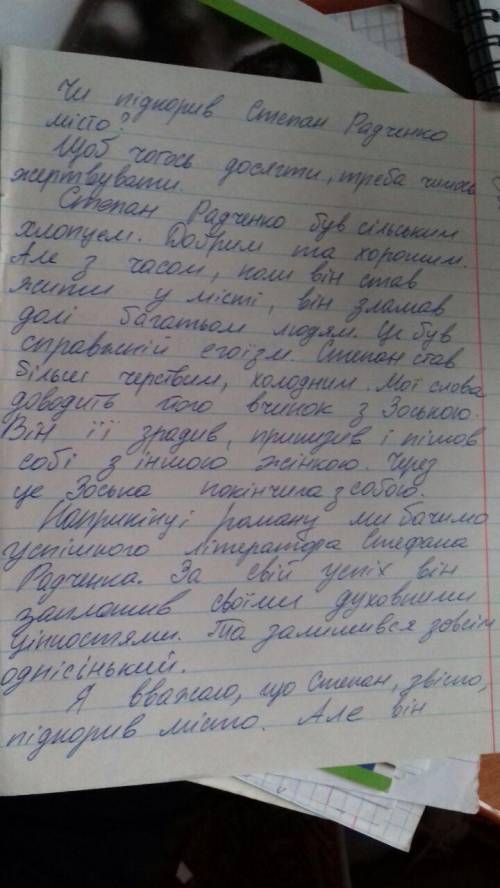 Чи підкорив Степан Радченко
місто?
Щоб чогось досягти, треба чимсь
жертвувати.
Степан Радченко був сільським
хлопцем. Добрим та хорошим.
Але з часом, коли він став
жити у місті, він зламав
долі багатьом людям. Це був
справжній егоїзм. Степан став
більш черствим, холодним. Мої слова
доводить його вчинок з Зоською.
Він її зрадив, принизив і пішов
собі з іншою жінкою. Через
це Зоська покінчила з собою.
Наприкінці роману ми бачимо
успішного літератора Стефана
Радченка. За свій успіх він
заплатив своїми духовними
цінностями. Та залишився зовсім
однісінький.
Я вважаю, що Степан, звісно,
підкорив місто. Але він